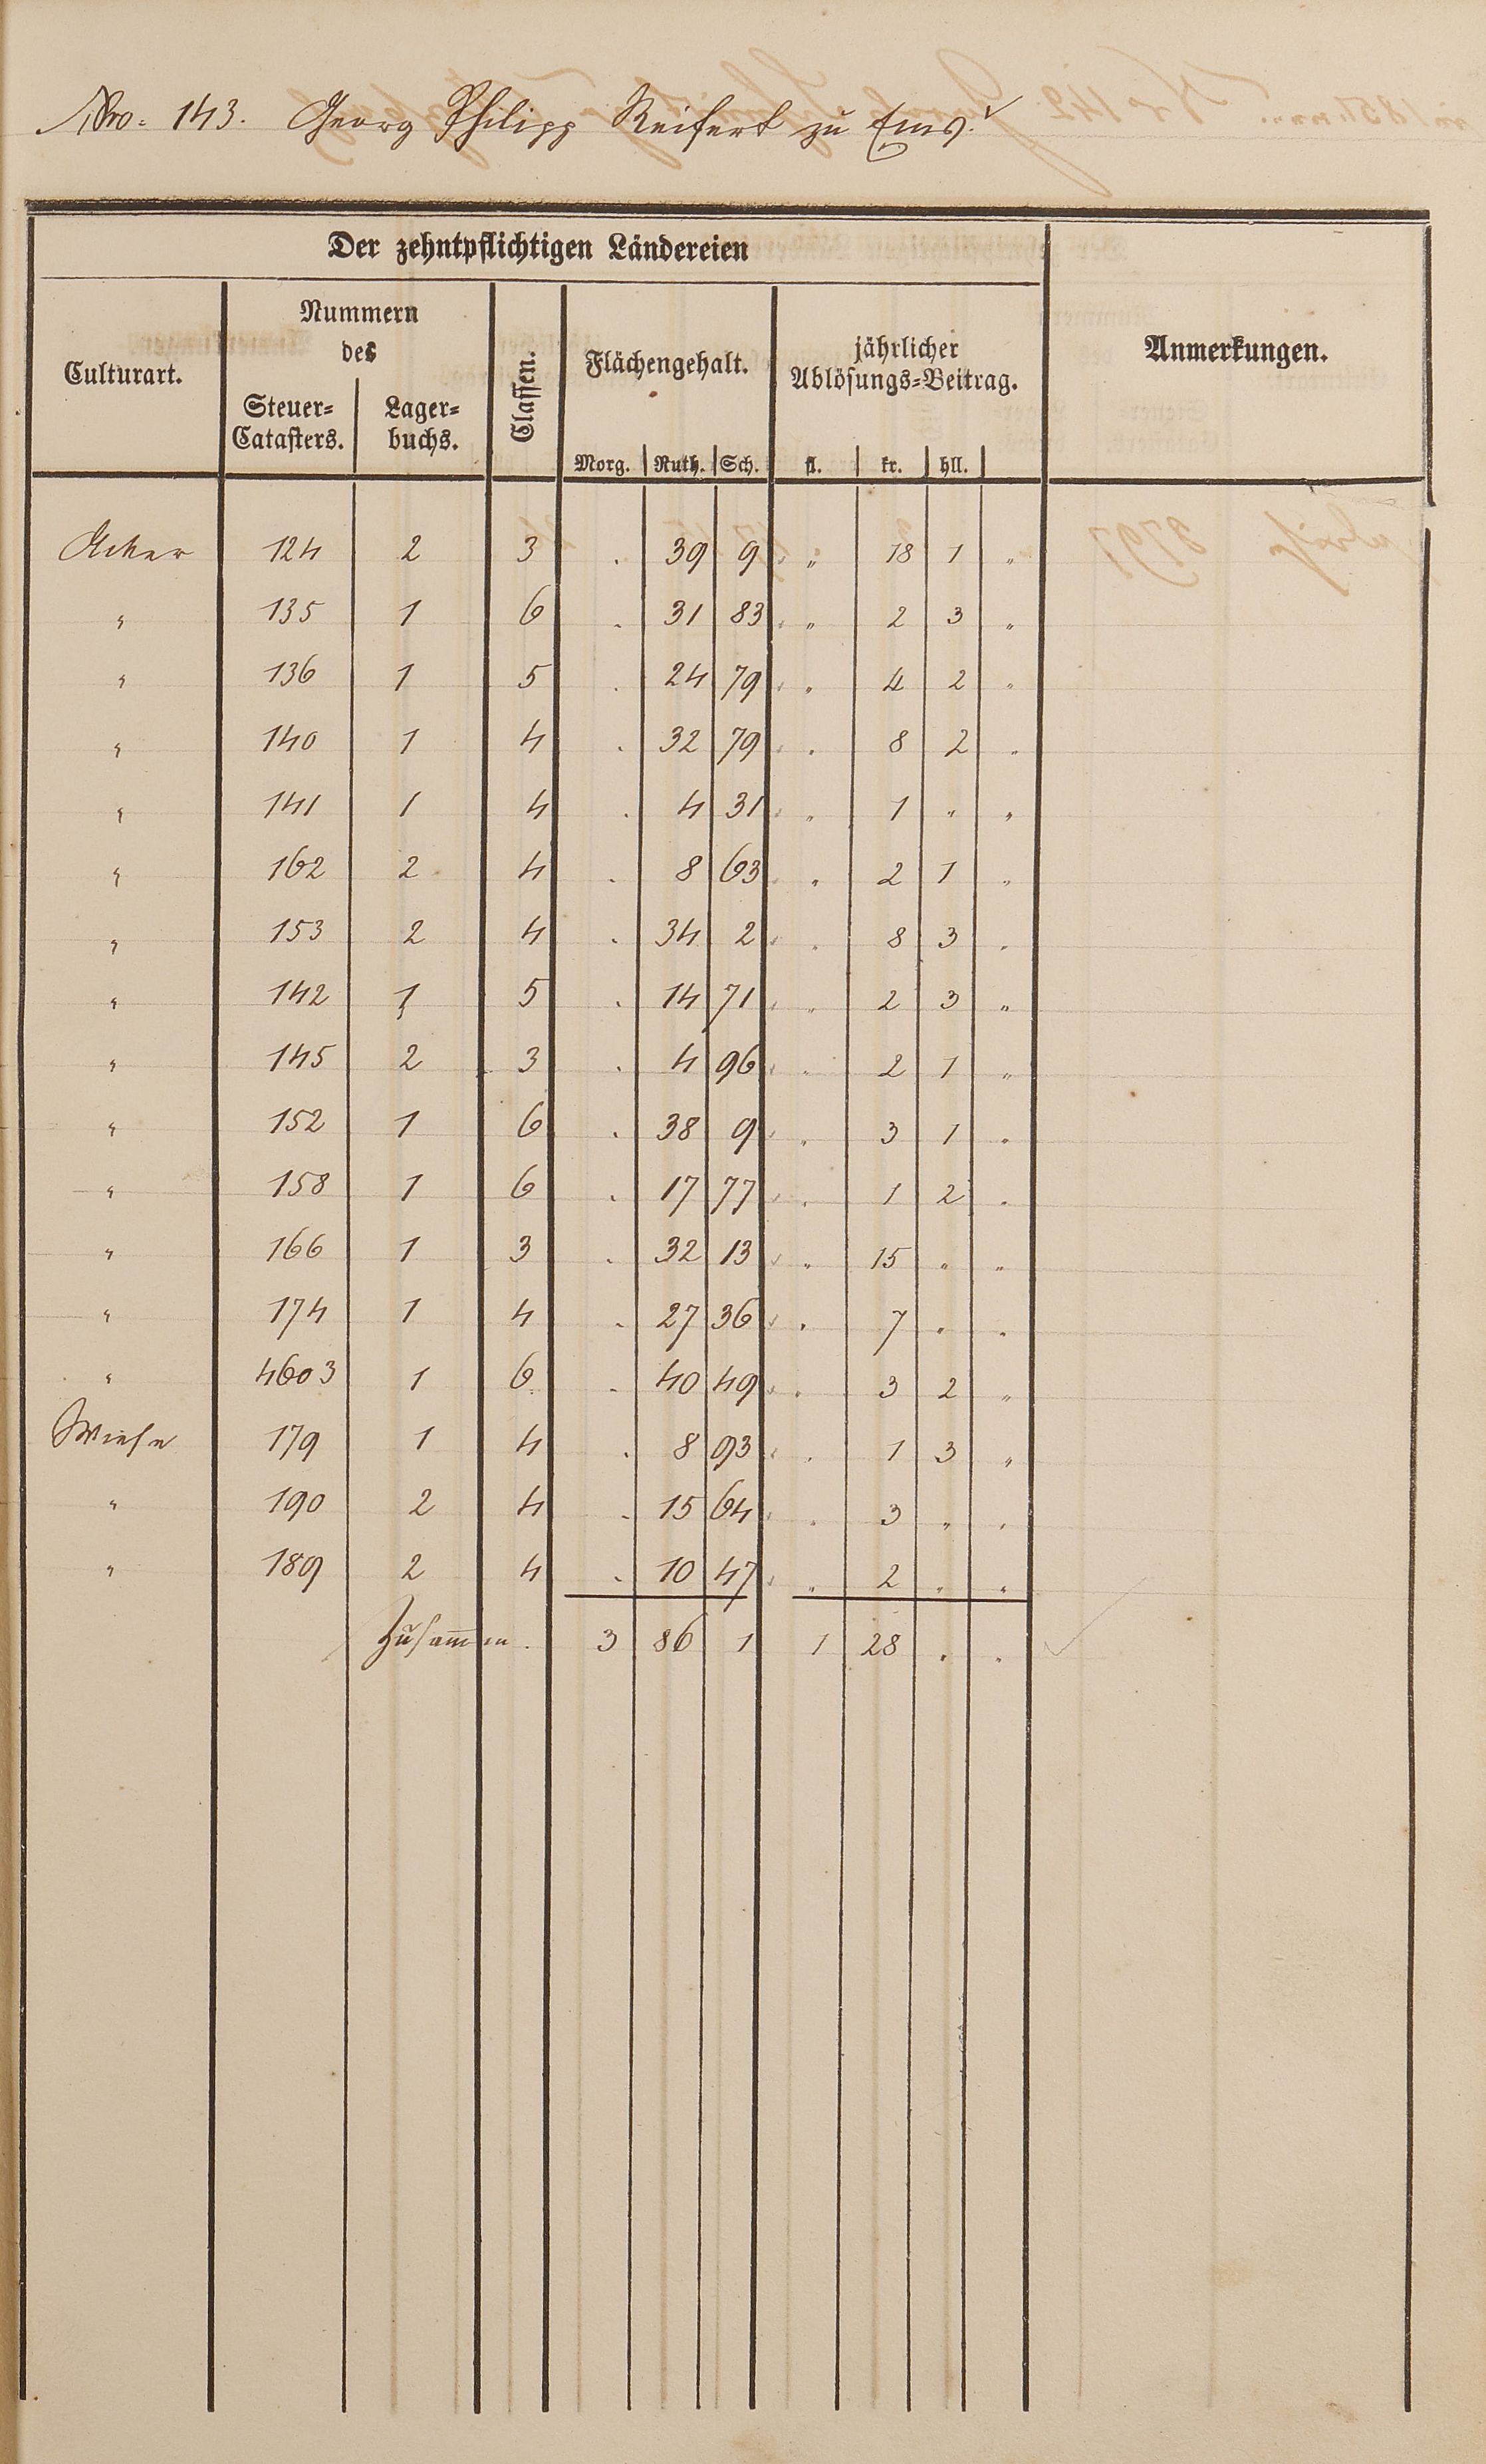 Nro. 143. Georg Philipp Reifert zu Ems.
Der zehntpflichtigen Ländereien
Culturart. Nummern des Steuer-Catasters. Lager-buchs. Classen. Flächengehalt. Morg. Ruth. Sch. jährlicher Ablösungs-Beitrag. fl. kr. hll. Anmerkungen.
Acker 124 2 3 . 39 9 " 18 1 "
" 135 1 6 . 31 83 " 2 3 "
" 136 1 5 . 24 79 " 4 2 "
" 140 1 4 . 32 79 " 8 2 "
" 141 1 4 . 4 31 " 1 " "
" 162 2 4 . 8 63 " 2 1 "
" 153 2 4 . 34 2 " 8 3 "
" 142 1 5 . 14 71 " 2 3 "
" 145 2 3 . 4 96 " 2 1 "
" 152 1 6 . 38 9 " 3 1 "
" 158 1 6 . 17 77 " 1 2 "
" 166 1 3 . 32 13 " 15 " "
" 174 1 4 . 27 36 " 7 " "
" 4603 1 6 . 40 49 " 3 2 "
Wiese 179 1 4 . 8 93 " 1 3 "
" 190 2 4 . 15 64 " 3 " "
" 189 2 4 . 10 47 " 2 " "
Zusammen. 3 86 1 1 28 . .